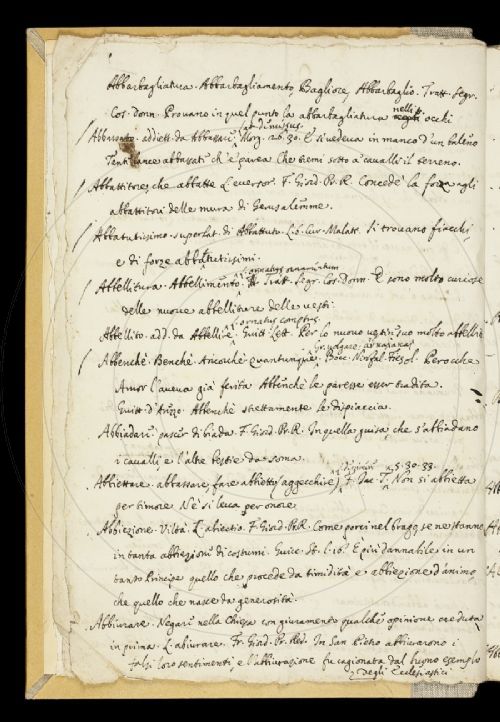 Abbarbagliatura. Abbarbagliamento, Bagliore, Abbarbaglio. Tratt. segr.
Cos. Donn. Provano in quel punto la abbarbagliatura negli occhi
nelli
Abbassato. addiett. da Abbassare. Morg. 26. 30. E si vedeva in manco d'un baleno
L. diminutus.
Tent' lance abbassate ch'e' parea Che tremi sotto a' cavalli il terreno.
Abbattitore, che abbatte L. eversor. F. Giord. Pr. R. Concedè la forza agli
abbattitori delle mura di Gerusalemme.
Abbatutissimo. superlat. di Abbattuto. Lib. cur. Malatt. Si trovano fiacchi,
e di forze abbattutissimi.
Abbellitura. Abbellimento. Tratt. segr. Cos. Donn. E sono molto curiose
L. ornatus ornamentum
delle nuove abbelliture delle vesti.
Abbellito. add. da Abbellire. Guitt. Lett. Per lo nuovo vestir suo molto abbellito
L. ornatus comptus.
Abbenchè. Benchè. Ancorchè quantunque. Bocc. Ninfal. Fiesol. Perocche
Gr. volgare
Amor l'aveva già ferita Abbenchè le paresse esser tradita.
Guitt. d'Arezzo. Abbenchè strettamente le dispiaccia.
Abbiadare. pascer di biada. F. Giord. Pr. R. In quella guisa, che s'abbiadano
i cavalli e l'altre bestie da soma.
Abbiettare. abbassare, fare abbietto (aggecchire) F. Jac. T. Non si abbietta
5. 30. 33.
per timore Nè si leva per onore
Abbiezione. Viltà. L. abiectio. F. Giord. Pr. R. Come porci nel brago, se ne stanno
in tanta abbiezione di costumi. Guicc. St. l. 16. E più dannabile in un
tanto Principe quello che procede da timidità e abbiezione d'animo,
che quello che nasce da generosità.
Abbiurare. Negare nella Chiesa con giuramento qualche opinione creduta
in prima. L. abiurare. Fr. Giord. Pr. Red. In San Pietro abbiurarono i
falsi loro sentimenti, e l'abbiurazione fu cagionata dal buono esempio
degli Ecclesiastici